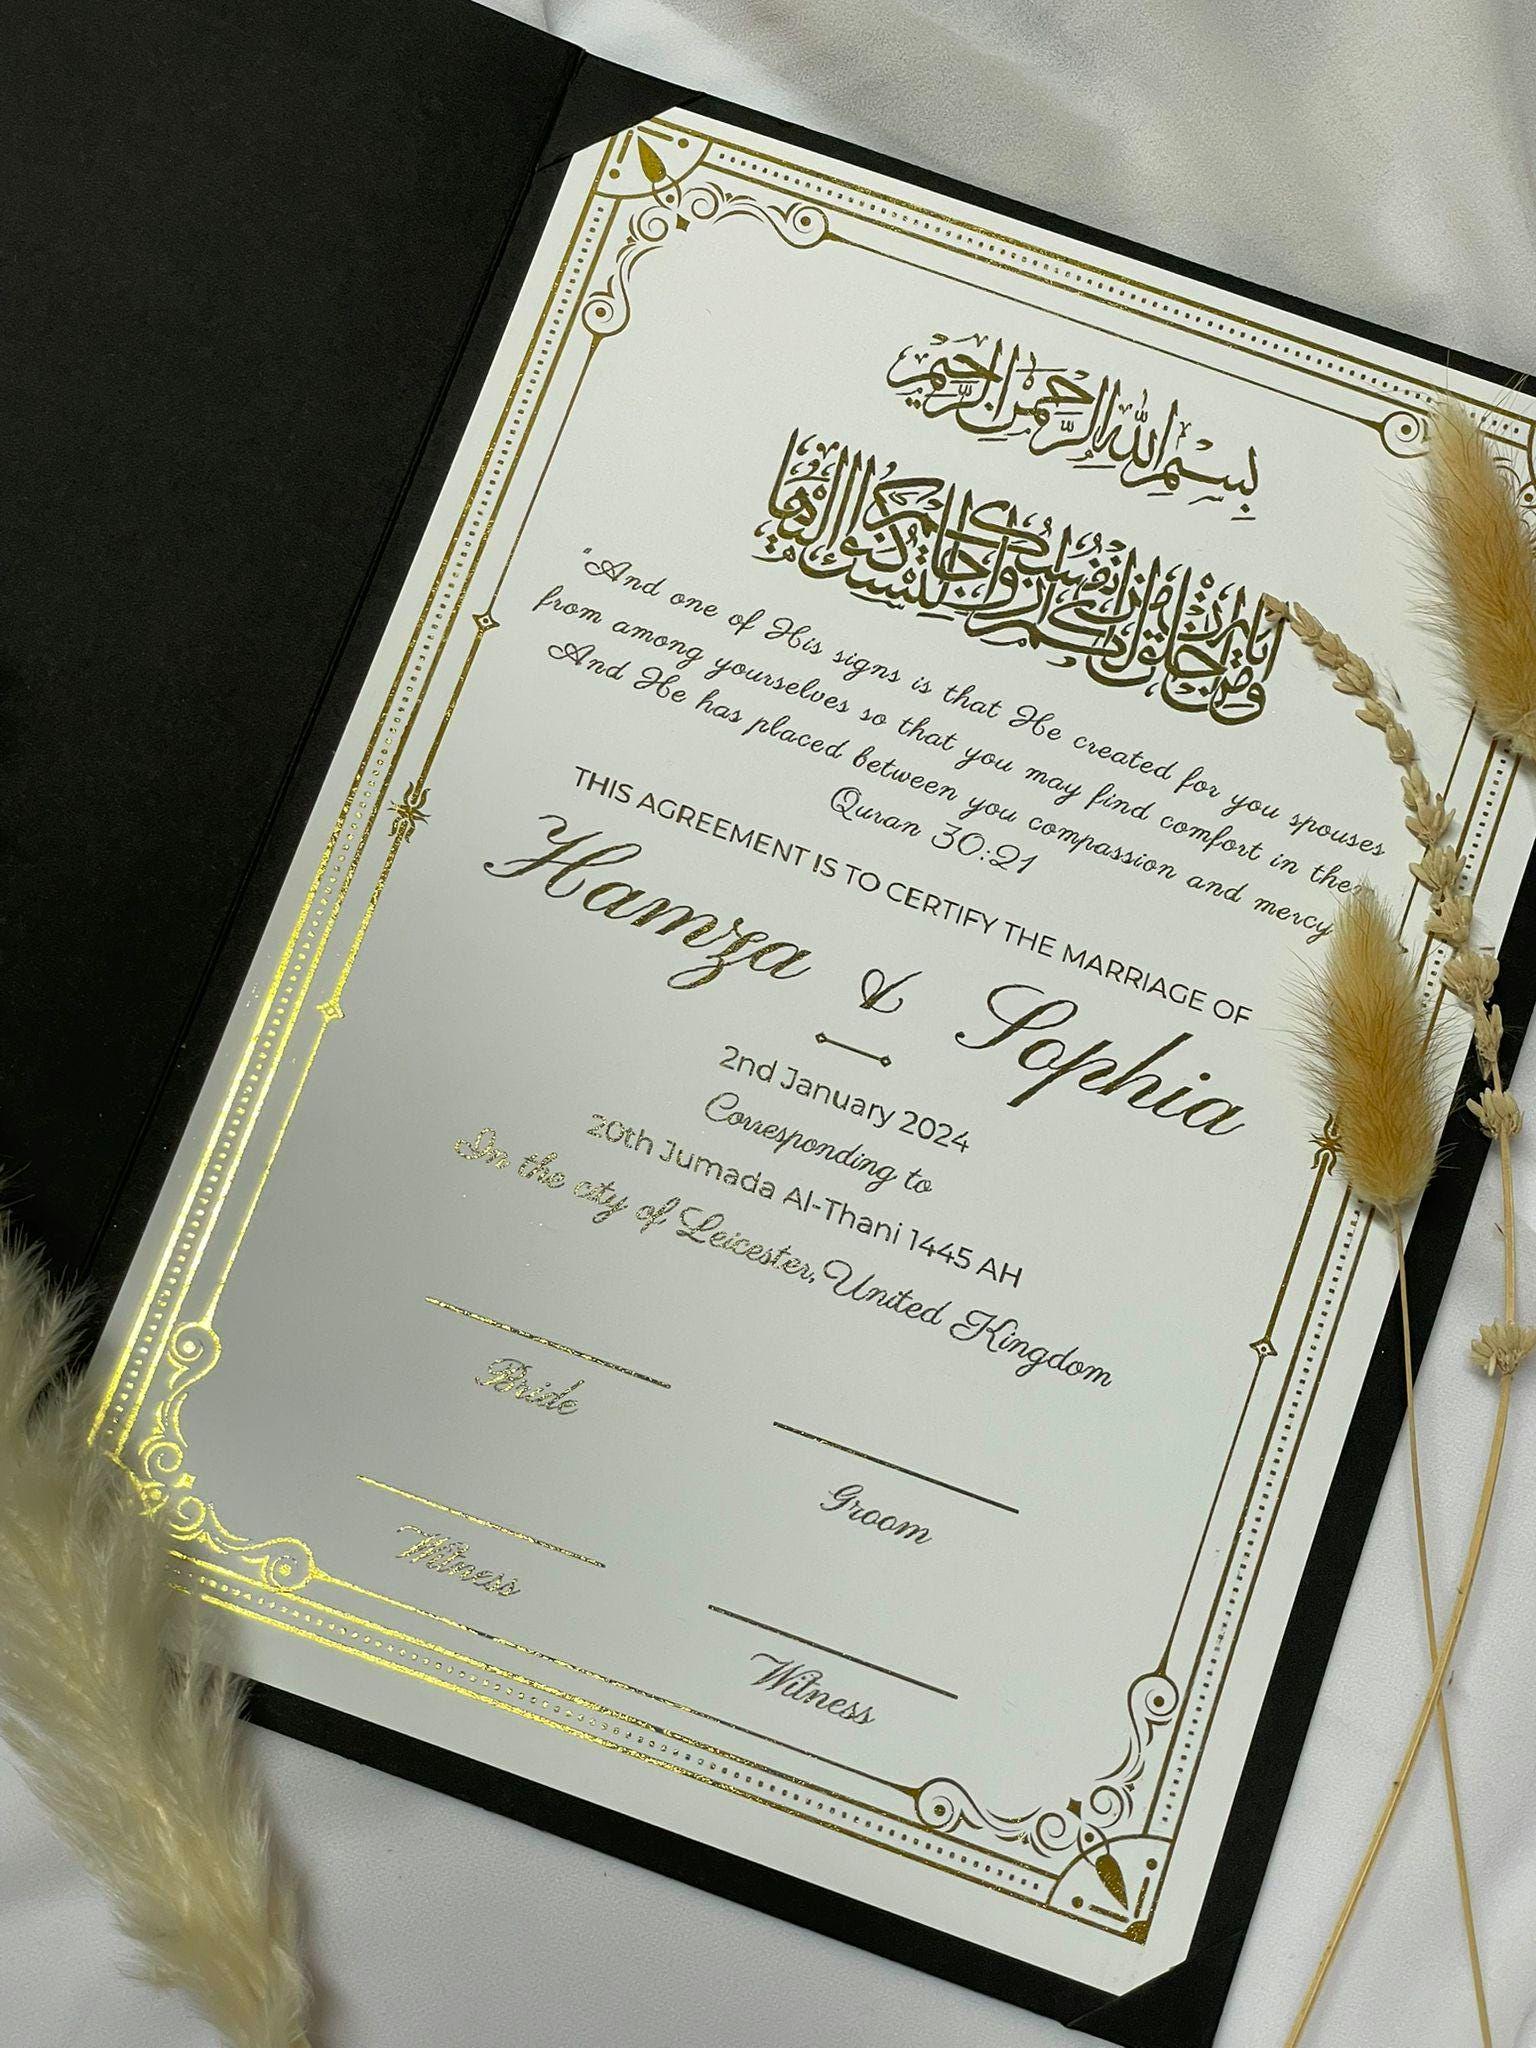 بِسْمِ اللهِ الرَّحْمٰنِ الرَّحِيْمِ
وَمِنْ آيَاتِهِ أَنْ خَلَقَ لَكُمْ مِنْ أَنْفُسِكُمْ أَزْوَاجًا لِتَسْكُنُوا إِلَيْهَا
"And one of His signs is that He created for you spouses
from among yourselves so that you may find comfort in them
And He has placed between you compassion and mercy
Quran 30:21
THIS AGREEMENT IS TO CERTIFY THE MARRIAGE OF
Hamza & Sophia
2nd January 2024
Corresponding to
20th Jumada Al-Thani 1445 AH
In the city of Leicester, United Kingdom
Bride
Groom
Witness
Witness